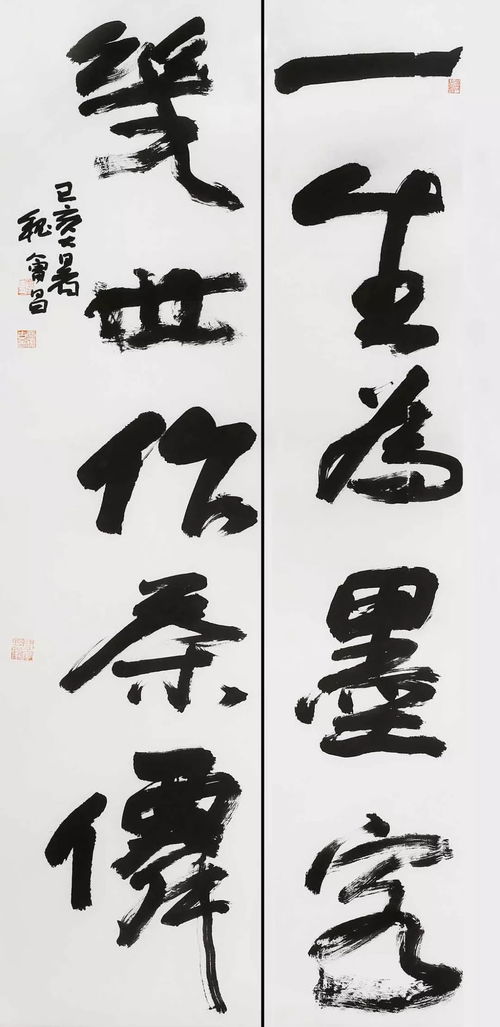 一生为墨客
幾世作茶僊
己亥大暑
魏會昌